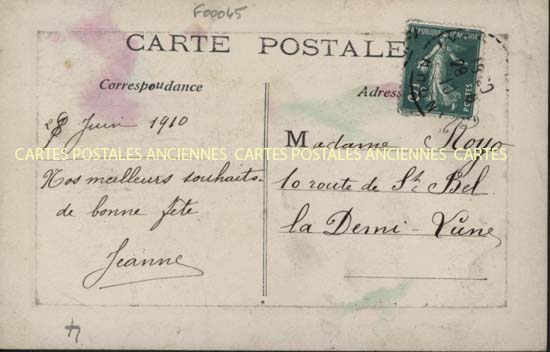 F00045
CARTE POSTALE
Correspondance
Adresse
28 Juin 1910
Madame Royo
CARTES POSTALES ANCIENNES CARTES POSTALES ANCIENNES CARTES
Nos meilleurs souhaits
de bonne fête
Jeanne
10 route de St Bel
la Demi-Lune
4